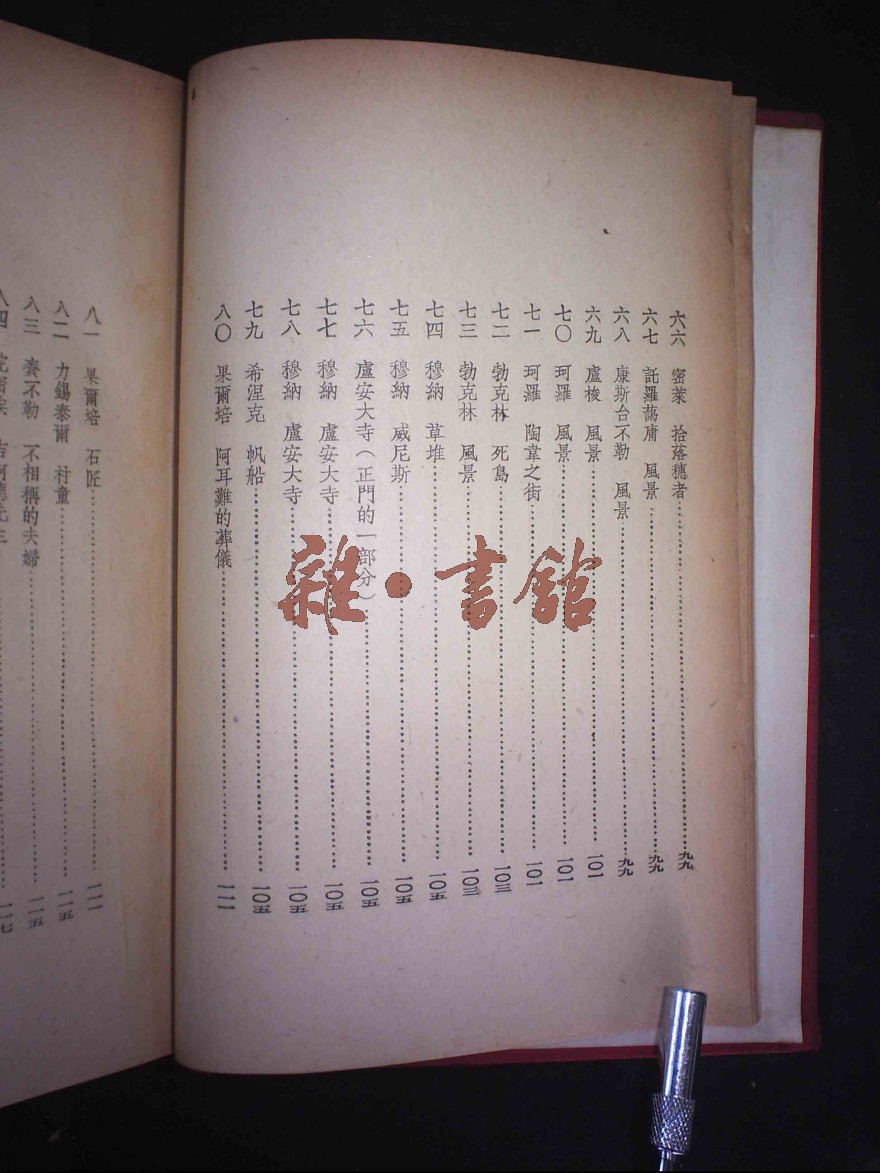 六六　密萊　拾落穗者……九九
六七　託羅蔼庸　風景……九九
六八　康斯台不勒　風景……九九
六九　盧梭　風景……一〇一
七〇　珂羅　風景……一〇一
七一　珂羅　陶韋之街……一〇一
七二　勃克林　死島……一〇三
七三　勃克林　風景……一〇三
七四　穆納　草堆……一〇五
七五　穆納　威尼斯……一〇五
七六　盧安大寺（正門的一部分）……一〇五
七七　穆納　盧安大寺……一〇五
七八　穆納　盧安大寺……一〇五
七九　希涅克　帆船……一〇五
八〇　果爾培　阿耳難的葬儀……一一一
八一　果爾培　石匠……一一一
八二　力錫泰爾　村童……一一五
八三　賚不勒　不相稱的夫婦……一一五
八四……一一七
雜·書館